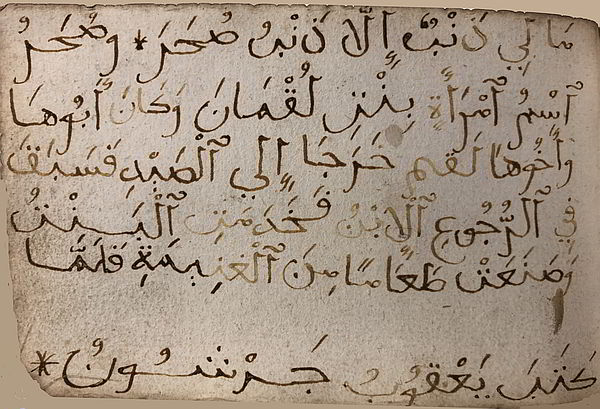 مَا لِي ذَنْبٌ إِلَّا ذَنْبُ صُحَرَ * وصُحَرُ
ٱسْمُ ٱمْرَأَةٍ بِنْتِ لُقْمَانَ وَكَانَ أَبُوهَا
وَأَخُوهَا لُقَيم خَرَجَا إِلي ٱلْصَيْدِ فَسَبَقَ
فِي ٱلرُّجُوعِ ٱلْاِبْنُ فَخَدَمَتِ ٱلْبِنْتُ
وَصَنَعَتْ طَعَامًا مِنَ ٱلْغَنِيمَةِ فَلَمَّا
كَتَبَ يَعْقُوبُ *